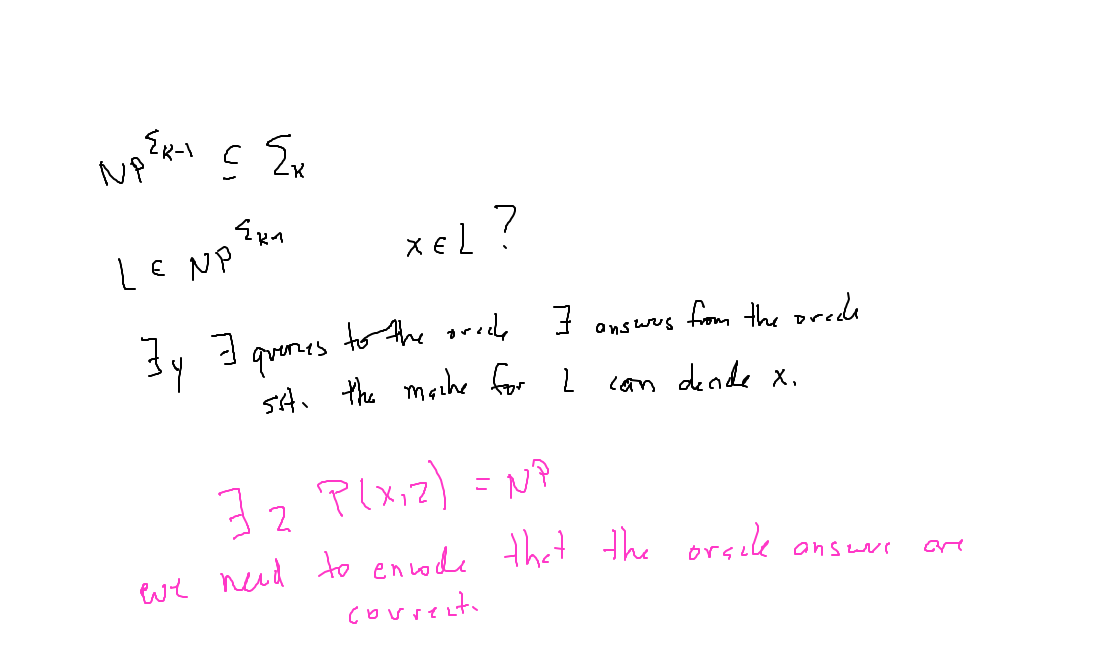 NP^{Σ_{k-1}} ⊆ Σ_k
L ∈ NP^{Σ_{k-1}} x ∈ L ?
∃y ∃ queries to the oracle ∃ answers from the oracle
s.t. the machine for L can decide x.
∃z P(x,z) = NP
we need to encode that the oracle answers are
correct.